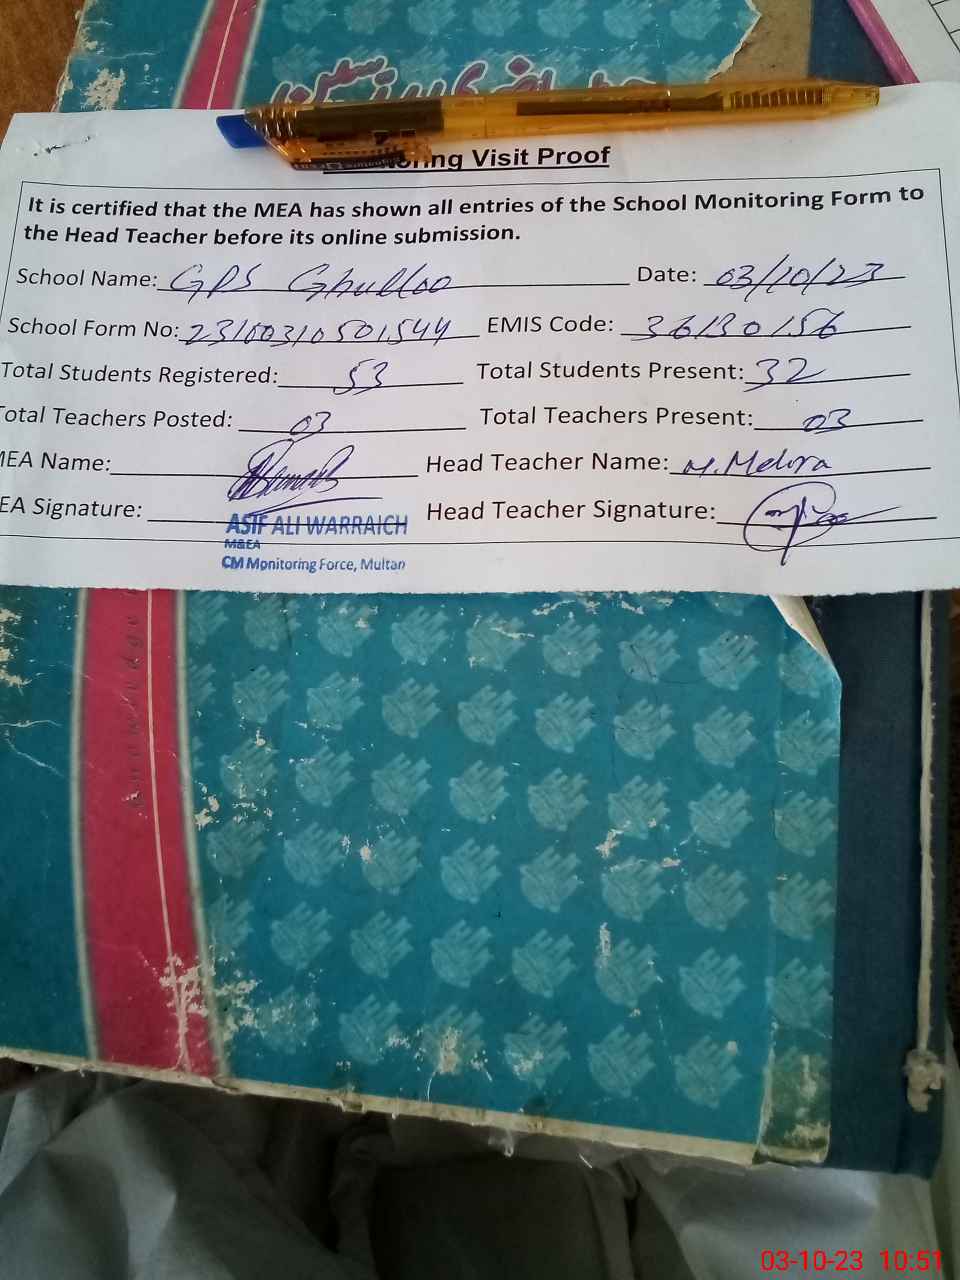 ring Visit Proof
It is certified that the MEA has shown all entries of the School Monitoring Form to
the Head Teacher before its online submission.
School Name: GPS Ghulloo Date: 03/10/23
School Form No: 23100310501544 EMIS Code: 36130156
Total Students Registered: 53 Total Students Present: 32
Total Teachers Posted: 03 Total Teachers Present: 03
MEA Name: Head Teacher Name: M. Mehra
EA Signature: Head Teacher Signature:
ASIF ALI WARRAICH
M&EA
CM Monitoring Force, Multan
03-10-23 10:51